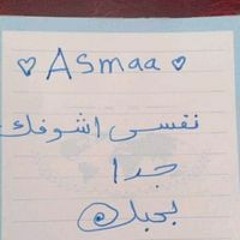 ♡ Asmaa ♡
نفسى اشوفك
جدا
بحبك